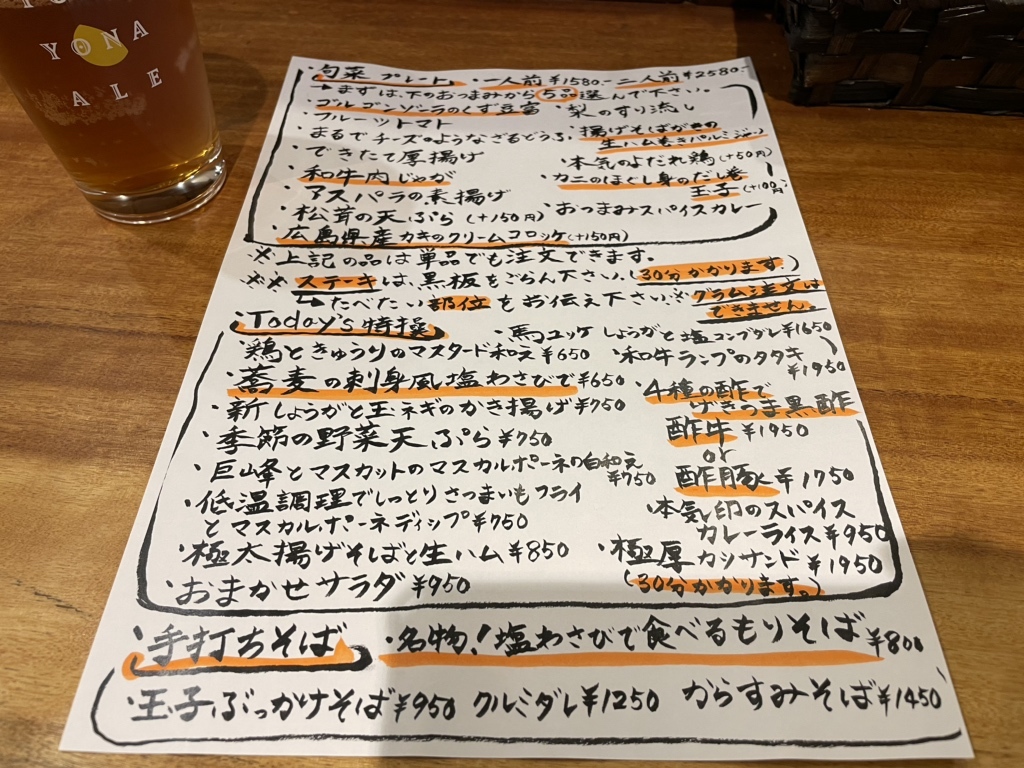 YONA
ALE
・旬菜プレート ・一人前¥1580- 二人前¥2580-
→まずは、下のおつまみから5品選んで下さい。
・ゴルゴンゾーラのくず豆富 梨のすり流し
・フルーツトマト
・まるでチーズのようなざるどうふ ・揚げそばがきの
生ハム巻きパルミジャーノ
・できたて厚揚げ ・本気のよだれ鶏(+50円)
・和牛肉じゃが ・カニのほぐし身のだし巻
玉子(+100円)
・アスパラの素揚げ
・松茸の天ぷら(+150円) ・おつまみスパイスカレー
・広島県産カキのクリームコロッケ(+150円)
※上記の品は単品でも注文できます。
※※ステーキは、黒板をごらん下さい。(30分かかります。)
→たべたい部位をお伝え下さい。※グラム注文は
できません。
・Today's特撰 ・馬ユッケ しょうがと塩コンブダレ¥1650
・鶏ときゅうりのマスタード和え¥650 ・和牛ランプのタタキ
¥1950
・蕎麦の刺身風塩わさびで¥650 ・4種の酢で
げきうま黒酢
・新しょうがと玉ネギのかき揚げ¥750 酢牛¥1950
・季節の野菜天ぷら¥750 or
・巨峰とマスカットのマスカルポーネの白和え
¥750 酢豚¥1750
・低温調理でしっとりさつまいもフライ
とマスカルポーネディップ¥750 ・本気印のスパイス
カレーライス¥950
・極太揚げそばと生ハム¥850 ・極厚カツサンド¥1950
・おまかせサラダ¥950 (30分かかります。)
・手打ちそば ・名物!塩わさびで食べるもりそば¥800
・玉子ぶっかけそば¥950 クルミダレ¥1250 からすみそば¥1450